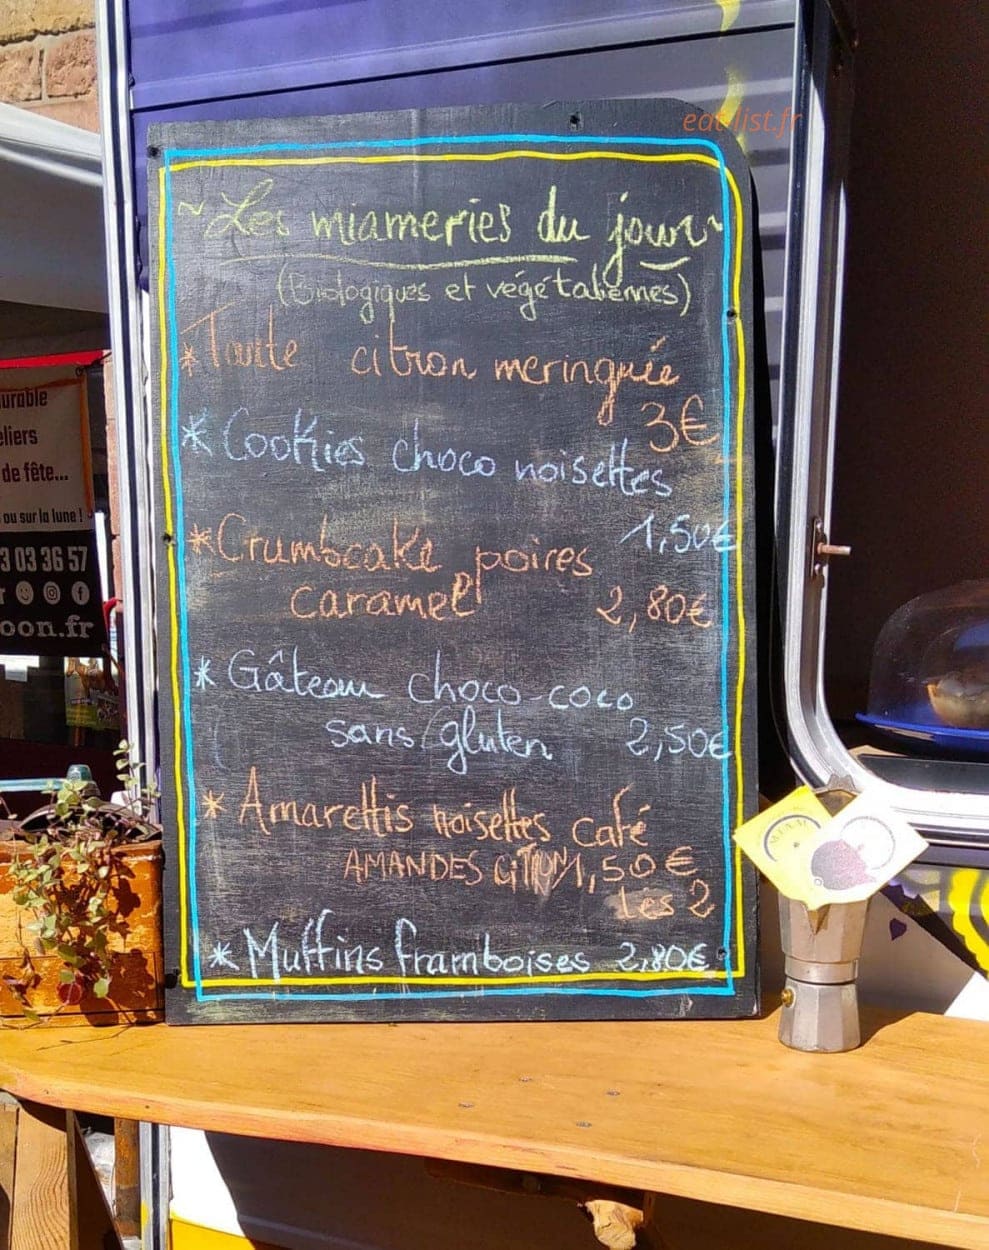 eat-list.fr
~ Les miameries du jour ~
(Biologiques et végétaliennes)
* Tarte citron meringuée
3€
* Cookies choco noisettes
1,50€
* Crumbcake poires
caramel 2,80€
* Gâteau choco-coco
sans gluten 2,50€
* Amarettis noisettes café
AMANDES CITRON 1,50€
les 2
* Muffins framboises 2,80€
urable
eliers
de fête...
ou sur la lune !
3 03 36 57
oon.fr